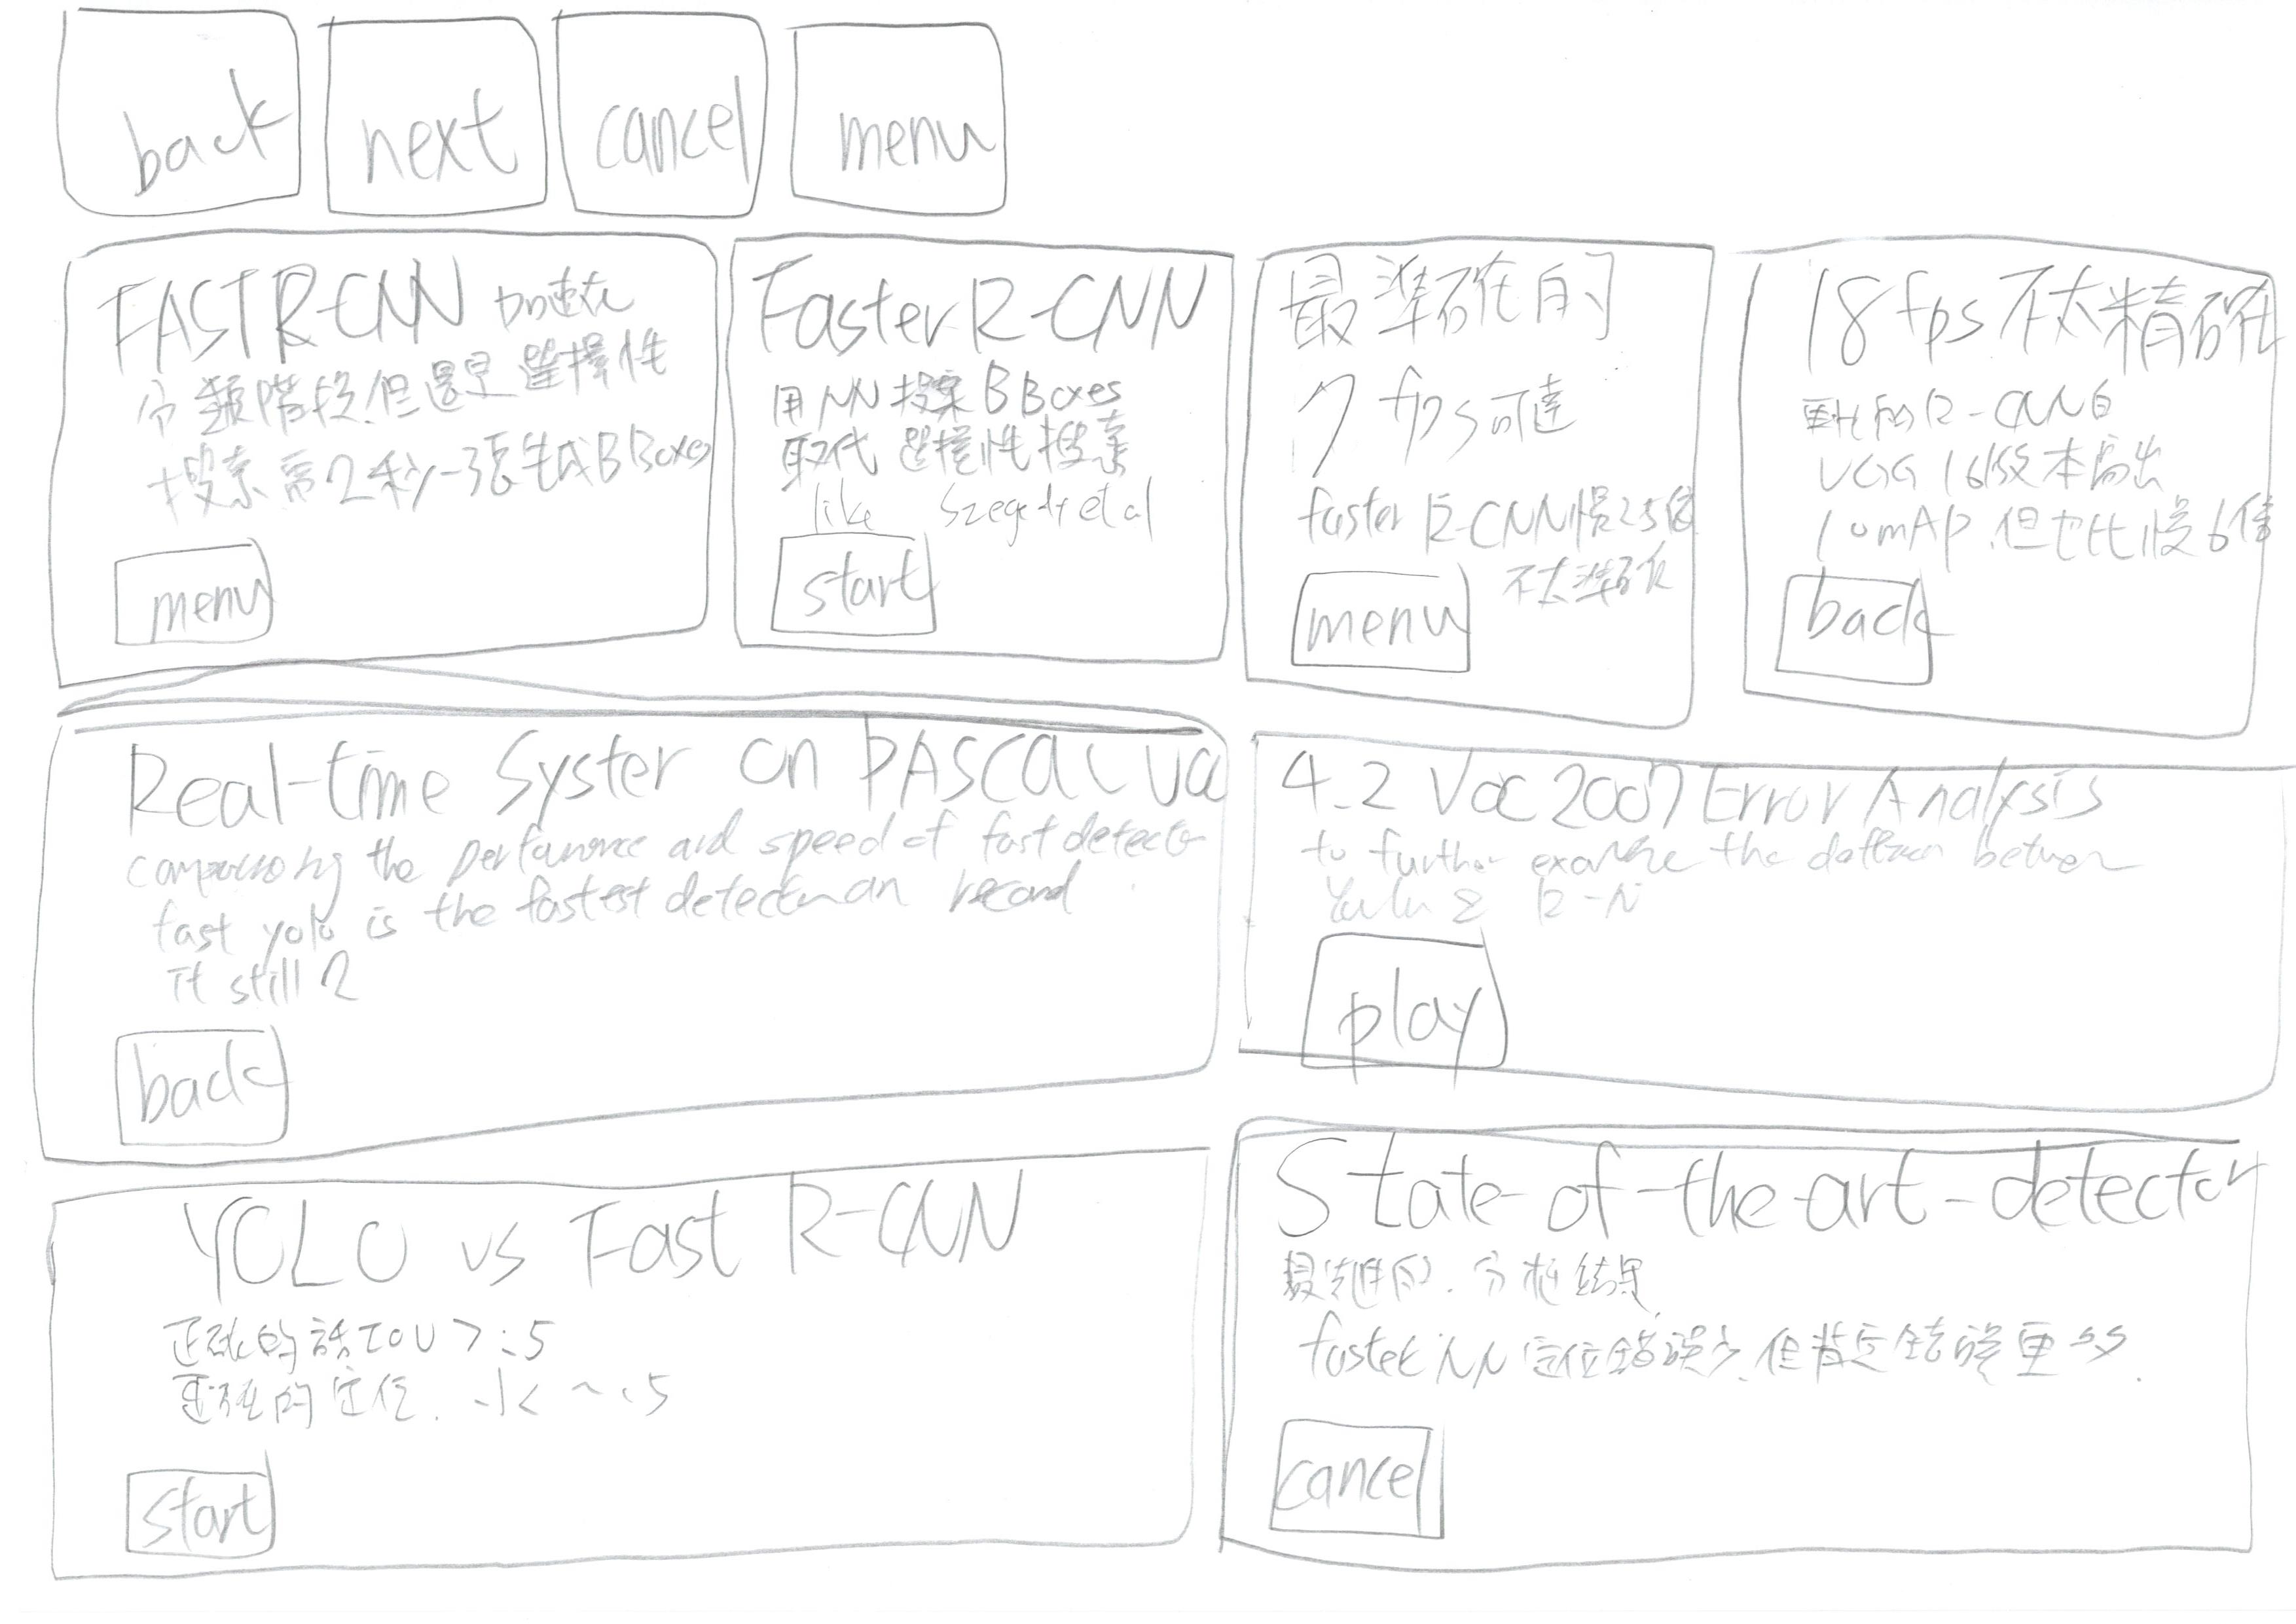 back
next
cancel
menu
FAST R-CNN 加速在
分類階段.但還是選擇性
搜索需2秒一張生成BBoxes
menu
Faster R-CNN
用NN搜索BBoxes
取代選擇性搜索
like Szeged et al
start
最準確的
7 fps可達
faster R-CNN慢2.5倍
不太準確
menu
18 fps不太精確
R-CNN
VGG 16版本高出
10mAP.但也比慢6倍
back
Real-time Syster on PASCAL VOC
the and speed of fast detector
fast yolo is the fastest detector on record
it still 2
back
4.2 Voc 2007 Error Analysis
to further examine the between
play
YOLO vs Fast R-CNN
正確的話IOU > .5
的定位. .1< ~ .5
start
State-of-the-art-detector
最先進的.分析結果
定位錯誤少.但背景錯誤更多.
cancel